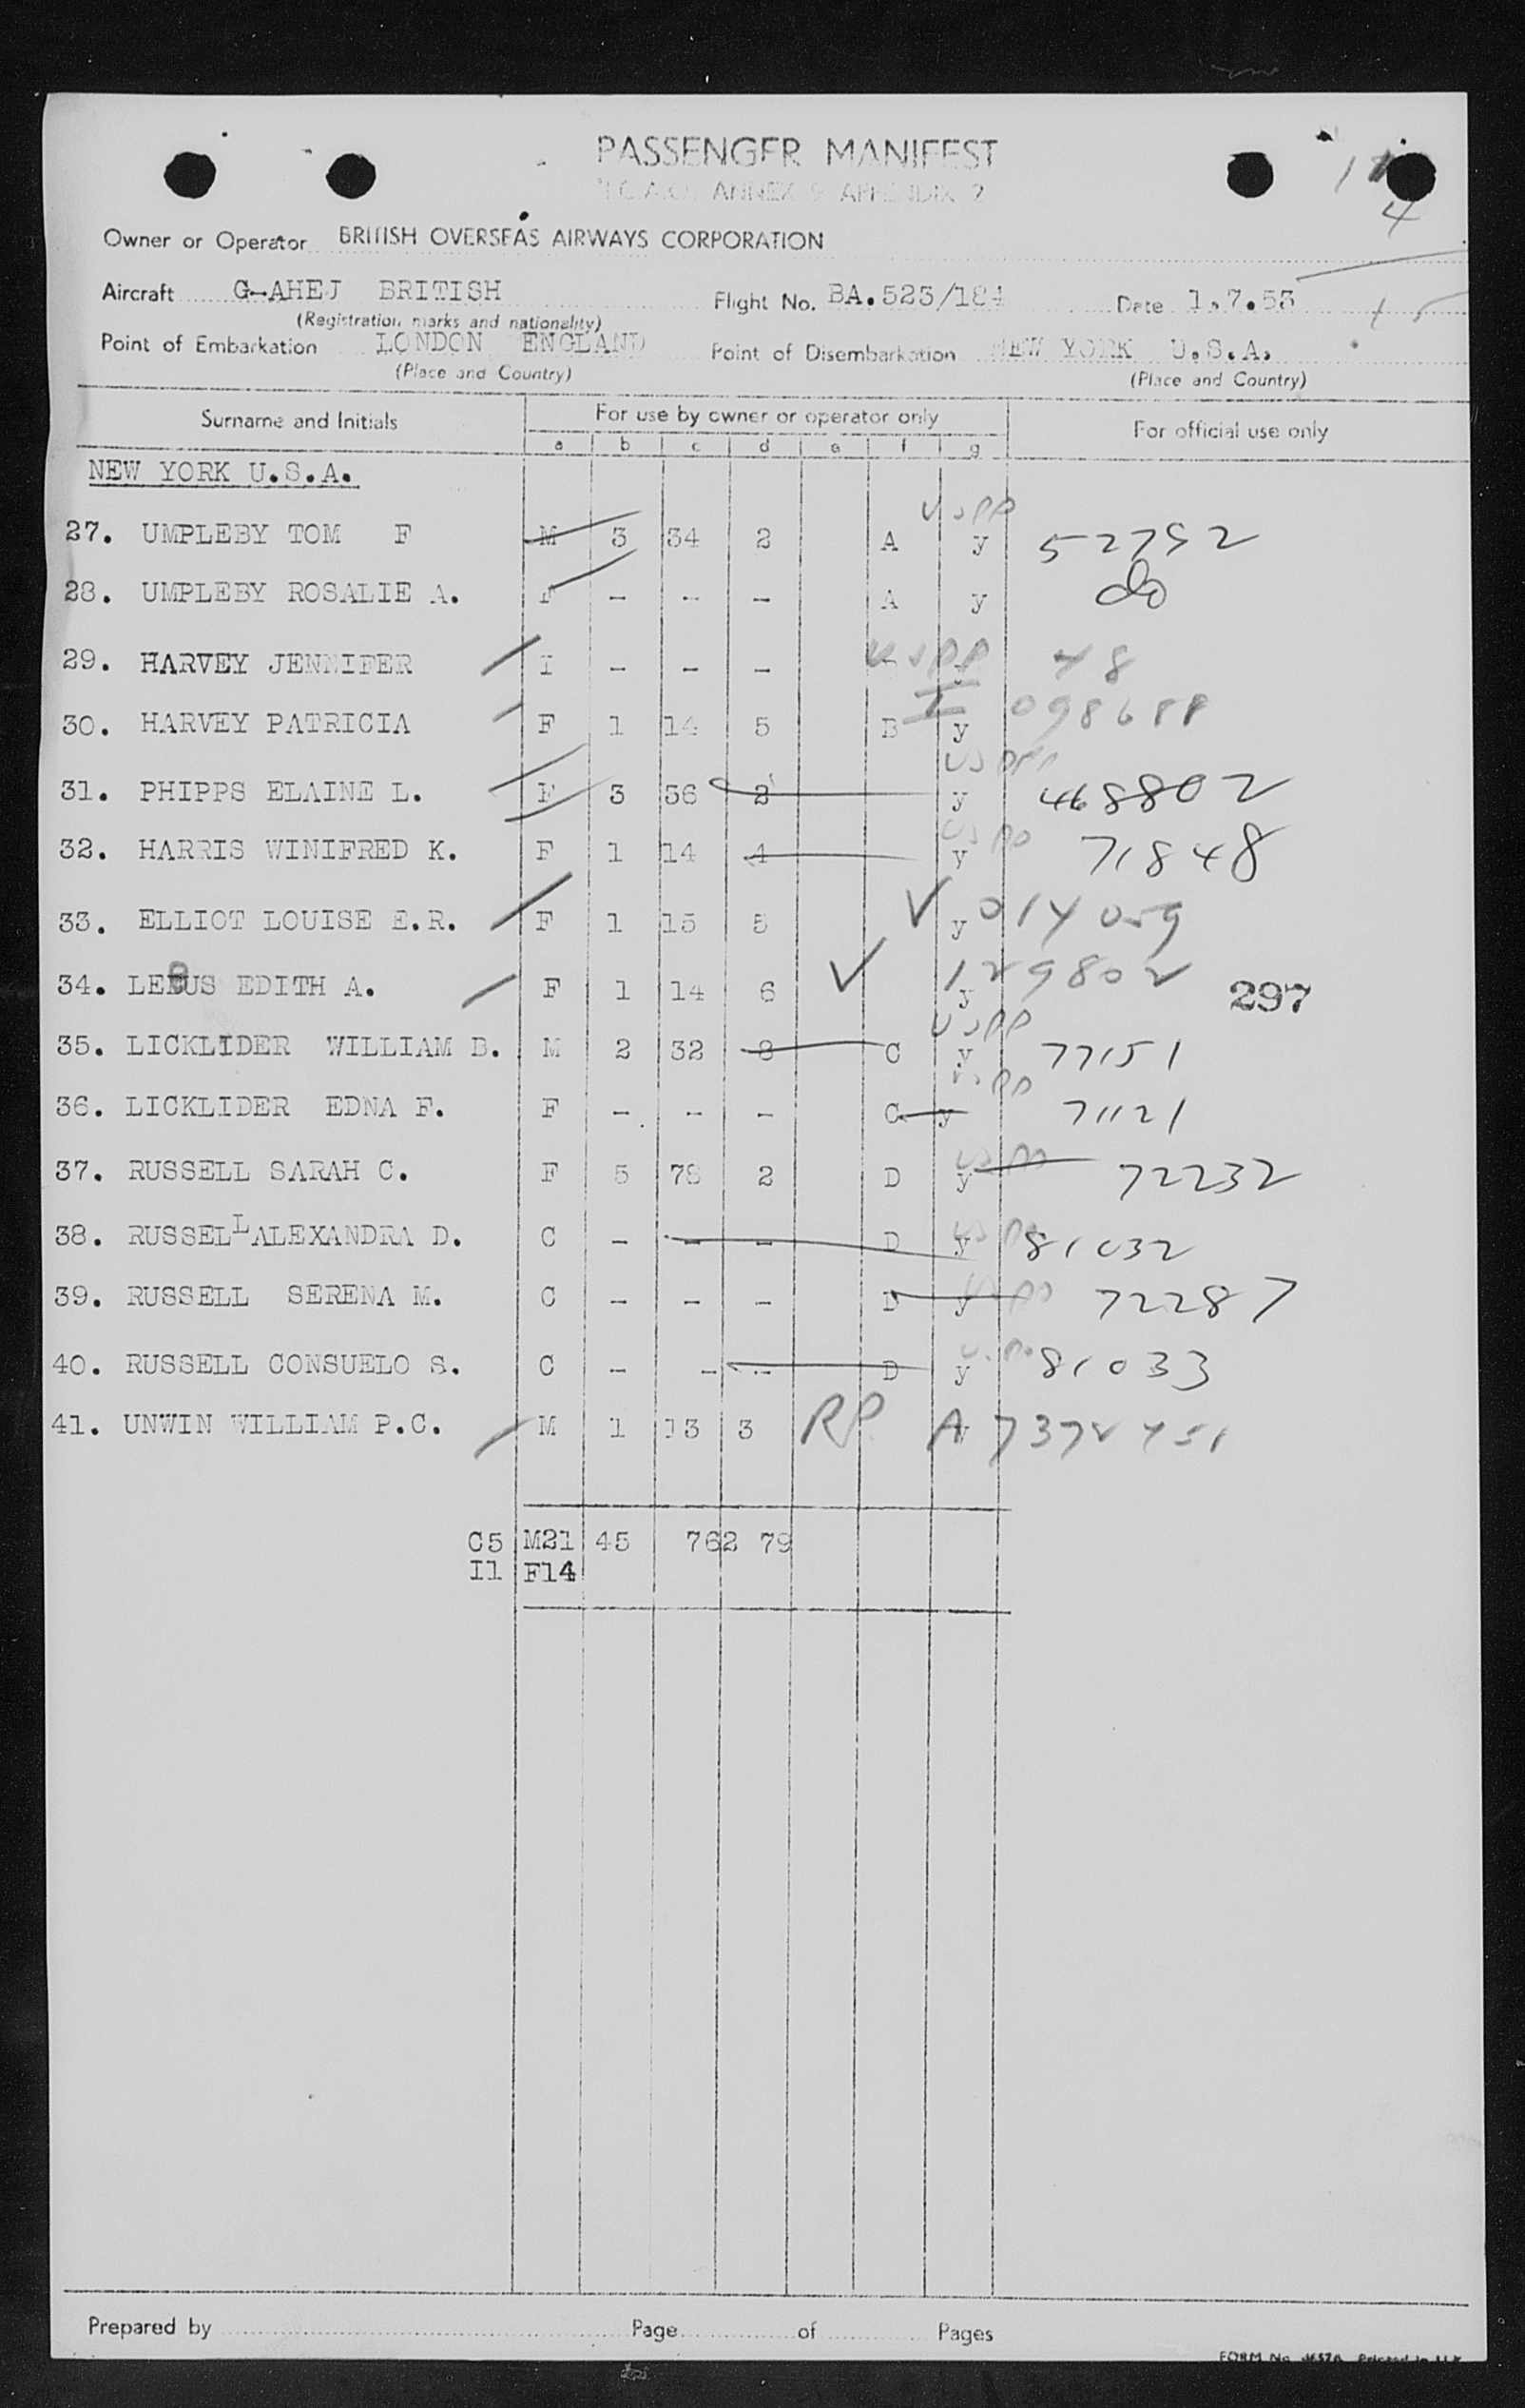 PASSENGER MANIFEST
I.C.A.O. ANNEX 9 APPENDIX 2
4
Owner or Operator BRITISH OVERSEAS AIRWAYS CORPORATION
Aircraft G-AHEJ BRITISH Flight No. BA.523/184 Date 1.7.53
(Registration marks and nationality)
Point of Embarkation LONDON ENGLAND Point of Disembarkation NEW YORK U.S.A.
(Place and Country) (Place and Country)
Surname and Initials For use by owner or operator only For official use only
a b c d e f g
NEW YORK U.S.A.
27. UMPLEBY TOM F M 3 34 2 A USPP y 52752
28. UMPLEBY ROSALIE A. F - - - A y do
29. HARVEY JENNIFER I - - - USPP 48
30. HARVEY PATRICIA F 1 14 5 B I y 098688
31. PHIPPS ELAINE L. F 3 56 2 USPP y 468802
32. HARRIS WINIFRED K. F 1 14 4 USPP y 71848
33. ELLIOT LOUISE E.R. F 1 15 5 ✓ y 014059
34. EDITH A. F 1 14 6 ✓ y 129802 297
35. LICKLIDER WILLIAM B. M 2 32 8 C USPP y 77151
36. LICKLIDER EDNA F. F - - - C y USPP 71121
37. RUSSELL SARAH C. F 5 78 2 D USPP y 72232
38. RUSSELL ALEXANDRA D. C - - - D y 81032
39. RUSSELL SERENA M. C - - - D y USPP 72287
40. RUSSELL CONSUELO S. C - - - D y 81033
41. UNWIN WILLIAM P.C. M 1 13 3 RP A y 7372451
C5 M21 45 762 79
I1 F14
Prepared by Page of Pages
FORM No. Printed in U.K.